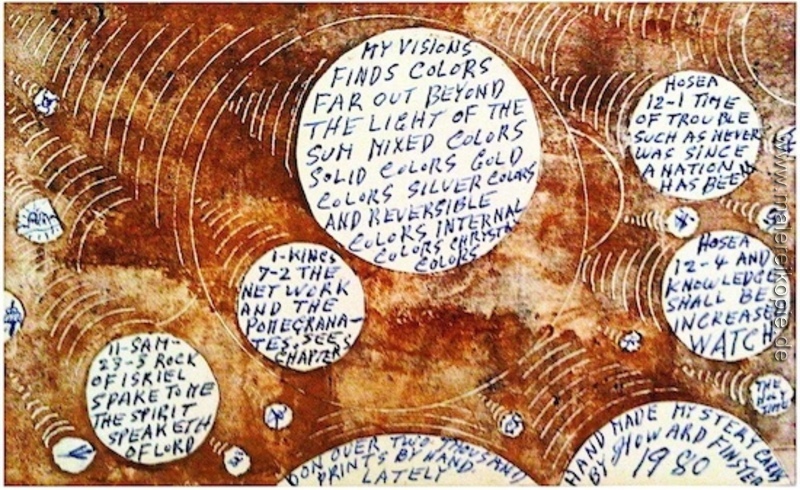 MY VISIONS
FINDS COLORS
FAR OUT BEYOND
THE LIGHT OF THE
SUM MIXED COLORS
SOLID COLORS GOLD
COLORS SILVER COLORS
AND REVERSIBLE
COLORS INTERNAL
COLORS CHRISTA
COLORS
HOSEA
12-1 TIME
OF TROUBLE
SUCH AS NEVER
WAS SINCE
A NATION
HAS BEEN
1-KINGS
7-2 THE
NET WORK
AND THE
POMEGRANA-
TES, SEE
CHAPTERS
HOSEA
12-4 AND
KNOWLEDGE
SHALL BE
INCREASE
WATCH
11-SAM-
23-3 ROCK
OF ISRIEL
SPAKE TO ME
THE SPIRIT
SPEAKETH
OF LORD
THE
HOLY
TIME
DON OVER TWO THOUSAND
PRINTS BY HAND
LATELY
HAND MADE MYSTERY CARDS
BY HOWARD FINSTER
1980
www.malereikopie.de